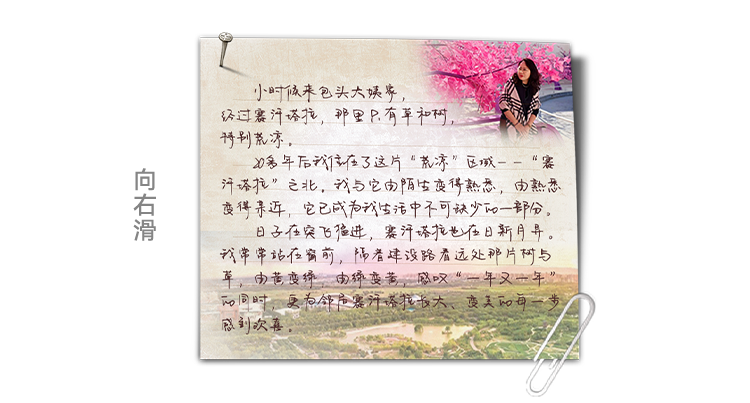 向右滑
小时候来包头大姨家,
经过赛汗塔拉,那里只有草和树,
特别荒凉。
20多年后我住在了这片“荒凉”区域--“赛
汗塔拉”之北。我与它由陌生变得熟悉,由熟悉
变得亲近,它已成为我生活中不可缺少的一部分。
日子在突飞猛进,赛汗塔拉也在日新月异。
我常常站在窗前,隔着建设路看远处那片树与
草,由黄变绿,由绿变黄,感叹“一年又一年”
的同时,更为邻居赛汗塔拉长大、变美的每一步
感到欢喜。